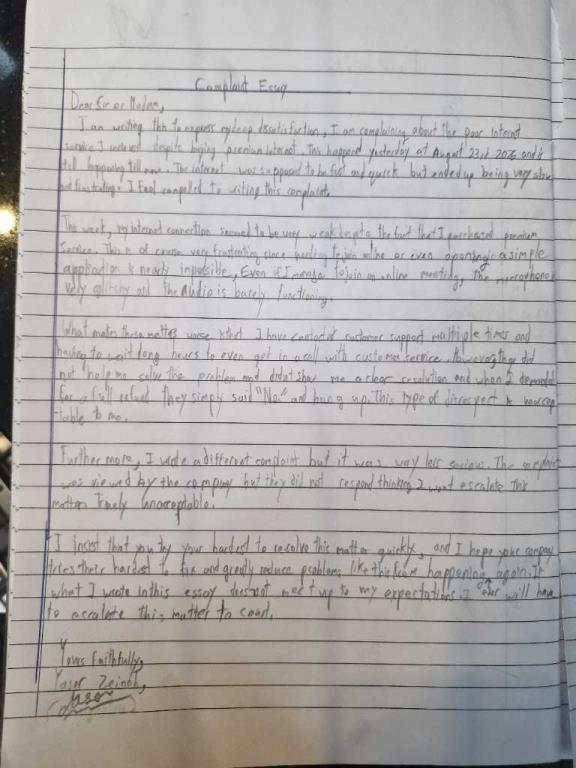 Complaint Essay
Dear Sir or Madam,
I am writing this to express my deep dissatisfaction, I am complaining about the poor internet
service I endured despite buying premium internet. This happend yesterday at August 23rd 2025 and is
still happening till now. The internet was supposed to be fast and quick but ended up being very slow
and frustrating. I feel compelled to writing this complaint.
This week, my internet connection seemed to be very weak despite the fact that I purchased premium
service. This is of course very frustrating since to join online or even opening a simple
application is nearly impossible, Even if I manage to join an online meeting, the microphone
very glitchy and the audio is barely functioning.
What makes these matters worse is that I have contacted customer support multiple times and
having to wait long hours to even get in a call with customer service. However they did
not help me solve the problem and didn't show me a clear resolution and when I demanded
for a full refund they simply said "No" and hung up. This type of disrespect is unaccep
table to me.
Further more, I wrote a different complaint but it was way less serious. The complaint
was viewed by the company but they did not respond thinking I wont escalate this
matter. Truely unacceptable.
I insist that you try your hardest to resolve this matter quickly, and I hope your company
tries their hardest to fix and greatly reduce problems like this from happening again. If
what I wrote in this essay does not meet up to my expectations. I will have
to escalate this matter to court.
Yours Faithfully,
Yaser Zeinah,
Yaser